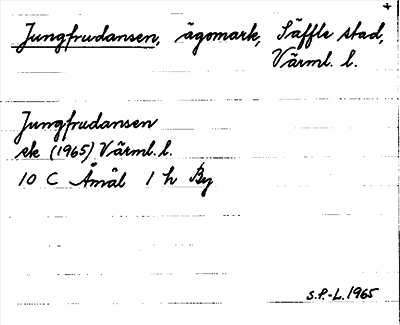 +
Jungfrudansen, ägomark, Säffle stad,
Värml. l.
Jungfrudansen
ek (1965) Värml. l.
10 C Åmål 1 h By
S.P.-L. 1965